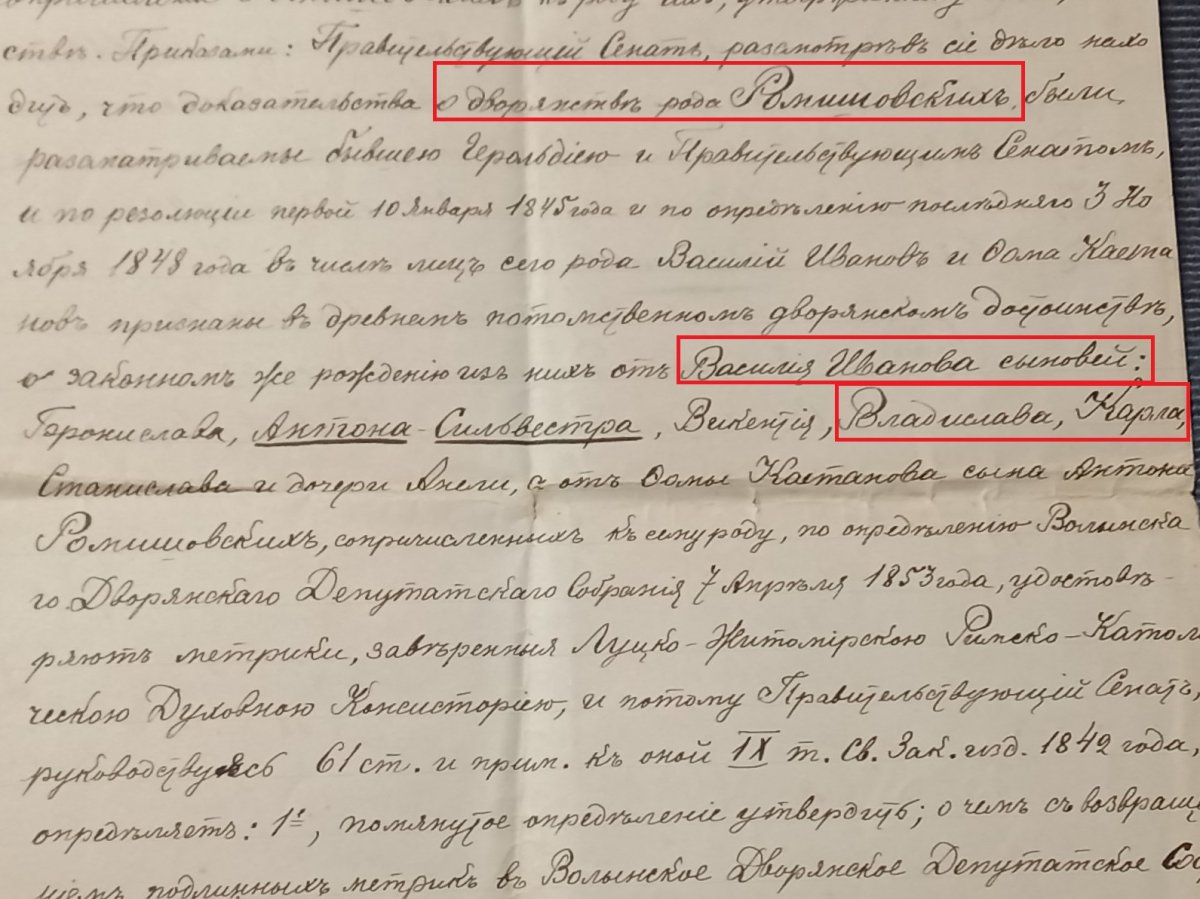 ствѣ. Приказами: Правительствующій Сенатъ, разсмотрѣвъ сіе дѣло нахо
дитъ, что доказательства о дворянствѣ рода Ромишовскихъ, были
разсматриваемы бывшею Герольдіею и Правительствующимъ Сенатомъ,
и по резолюціи первой 10 Января 1845 года и по опредѣленію послѣдняго 3 Но
ября 1848 года въ числѣ лицъ сего рода Василій Ивановъ и Ѳома Каета
новъ признаны въ древнемъ потомственномъ дворянскомъ достоинствѣ,
о законномъ же рожденію изъ нихъ отъ Василія Иванова сыновей:
Бронислава, Антона-Сильвестра, Викентія, Владислава, Карла,
Станислава и дочери Анели, а отъ Ѳомы Каетанова сына Антона
Ромишовскихъ, сопричисленныхъ къ сему роду, по опредѣленію Волынска
го Дворянскаго Депутатскаго Собранія 7 Апрѣля 1853 года, удостовѣ-
ряютъ метрики, завѣренныя Луцко-Житомірскою Римско-Католи
ческою Духовною Консисторіею, и потому Правительствующій Сенатъ,
руководствуясь 61 ст. и прим. къ оной IX т. Св. Зак. изд. 1842 года,
опредѣляетъ: 1е, помянутое опредѣленіе утвердить; о чемъ съ возвраще
ніемъ подлинныхъ метрикъ въ Волынское Дворянское Депутатское